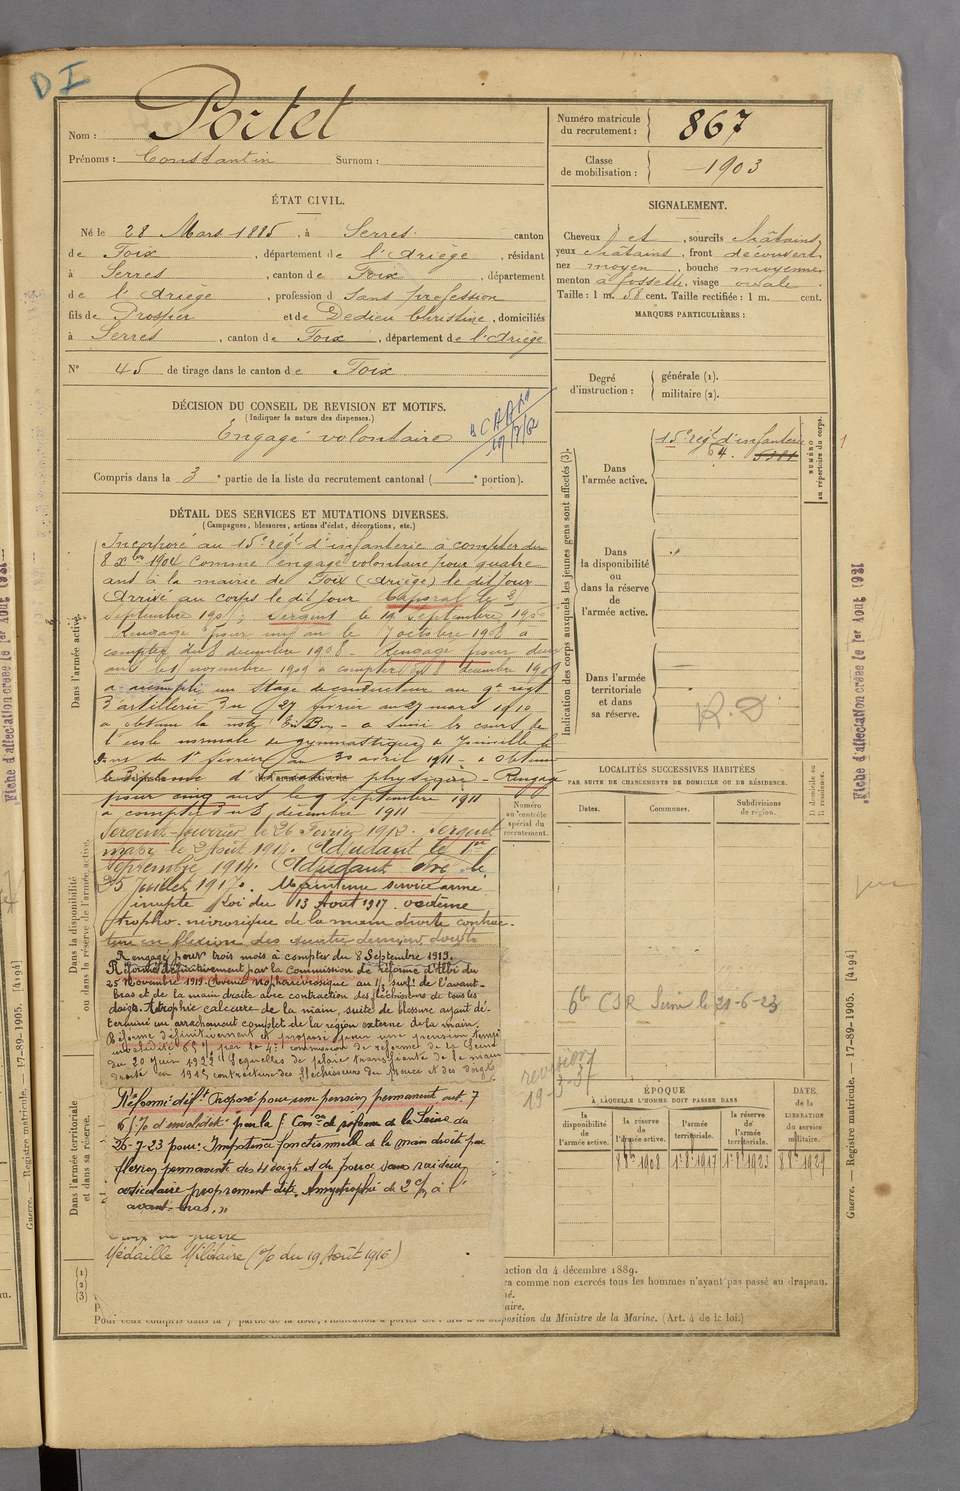 DI
Nom : Portet
Prénoms : Constantin Surnom :
Numéro matricule du recrutement : 867
Classe de mobilisation : 1903
ÉTAT CIVIL.
Né le 28 Mars 1885, à Serres canton
de Foix, département de l'Ariège, résidant
à Serres, canton de Foix, département
de l'Ariège, profession d Sans profession
fils de Prosper et de Dedieu Christine, domiciliés
à Serres, canton de Foix, département de l'Ariège
N° 45 de tirage dans le canton de Foix
SIGNALEMENT.
Cheveux et, sourcils châtains
yeux châtains, front découvert
nez moyen, bouche moyenne
menton à fossette, visage ovale.
Taille : 1 m. 58 cent. Taille rectifiée : 1 m. cent.
MARQUES PARTICULIÈRES :
Degré d'instruction : générale (1).
militaire (2).
DÉCISION DU CONSEIL DE REVISION ET MOTIFS.
(Indiquer la nature des dispenses.)
Engagé volontaire
Compris dans la 3e partie de la liste du recrutement cantonal ( e portion).
DÉTAIL DES SERVICES ET MUTATIONS DIVERSES.
(Campagnes, blessures, actions d'éclat, décorations, etc.)
Dans l'armée active.
Incorporé au 15e régt d'infanterie à compter du
8 Xbre 1904 comme engagé volontaire pour quatre
ans à la mairie de Foix (Ariège) le dit jour
Arrivé au corps le dit jour Caporal le
septembre 190 ; Sergent le 19 Septembre 190
Rengagé pour un an le 7 octobre 1908 à
compter du 8 décembre 1908 - Rengagé pour deux
ans le 1 novembre 1909 à compter du 8 décembre 1909
a accompli un stage de conducteur au 9e régt
d'artillerie du 27 février au 27 mars 1910
a obtenu la note - a suivi les cours de
l'école normale de gymnastique de Joinville le
Pont du 1er février au 30 avril 1911 - a obtenu
d' physique - Rengagé
pour cinq ans le 9 septembre 1911
à compter du 8 décembre 1911
Sergent-fourrier le 26 Février 1912. Sergent
major le 2 Août 1914. Adjudant le 1er
septembre 1914. Adjudant chef le
25 Juillet 1917. Maintenu service armé
inapte Loi du 13 Aout 1917. oedème
tropho-névrosique de la main droite contrac-
ture en flexion des quatre derniers doigts
Dans la disponibilité ou dans la réserve de l'armée active.
Rengagé pour trois mois à compter du 8 Septembre 1919.
Réformé définitivement par la Commission de réforme d'Albi du
25 Novembre 1919. au 1/3 de l'avant-
bras et de la main droite avec contraction des fléchisseurs de tous les
doigts. Atrophie calcaire de la main, suite de blessure ayant dé-
terminé un arrachement complet de la région externe de la main.
Réformé définitivement et proposé pour une pension temp
invalidité 65 % par la 4e commission de réforme de la Seine
du 20 juin 1922 Séquelles de plaie transfixiante de la main
droite en 1915 contracture des fléchisseurs du pouce et des doigts
Dans l'armée territoriale et dans sa réserve.
Réformé déft Proposé pour une pension permanente
65 % d'invalidité par la Con de réforme de la Seine du
26-7-23 pour : Impotence fonctionnelle de la main droite par
flexion permanente des 4 doigts et du pouce sans raideur
articulaire proprement dite. Amyotrophie de 2 c/m à l'
avant-bras.
Croix de guerre
Médaille Militaire (JO du 19 Août 1916)
Indication des corps auxquels les jeunes gens sont affectés (3).
Dans l'armée active.
15e régt d'infanterie
64.
NUMÉRO au répertoire du corps.
1
Dans la disponibilité ou dans la réserve de l'armée active.
Dans l'armée territoriale et dans sa réserve.
R.D
LOCALITÉS SUCCESSIVES HABITÉES
PAR SUITE DE CHANGEMENTS DE DOMICILE OU DE RÉSIDENCE.
Numéro au contrôle spécial du recrutement.
Dates.
Communes.
Subdivisions de région.
D domicile ou R résidence.
6e CSR Seine le 21-6-23
19-3-37
ÉPOQUE
À LAQUELLE L'HOMME DOIT PASSER DANS
la disponibilité de l'armée active.
la réserve de l'armée active.
l'armée territoriale.
la réserve de l'armée territoriale.
DATE de la LIBERATION du service militaire.
8 Xbre 1908
1er 8bre 1917
1er 8bre 1923
8 Xbre 1929
(1)
(2)
(3)
uction du 4 décembre 1889.
ra comme non exercés tous les hommes n'ayant pas passé au drapeau.
ié.
aire.
Pour ceux compris dans la 7e partie de la liste, l'indication à porter est : Mis à la disposition du Ministre de la Marine. (Art. 4 de la loi.)
Guerre. — Registre matricule. — 17-89-1905. [4194]
Guerre. — Registre matricule. — 17-89-1905. [4194]
Fiche d'affectation créée le 1er Août 1921
Fiche d'affectation créée le 1er Août 1921